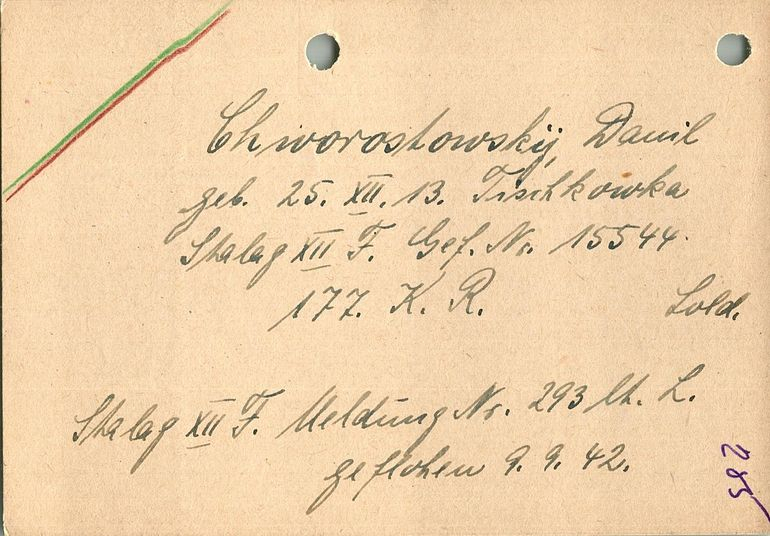 Chworostowskij Danil
geb. 25. XII. 13. Tischkowka
Stalag XII F. Gef. Nr. 15544.
177. K. R. Sold.
Stalag XII F. Meldung Nr. 293 lt. L.
geflohen 9. 9. 42.
285